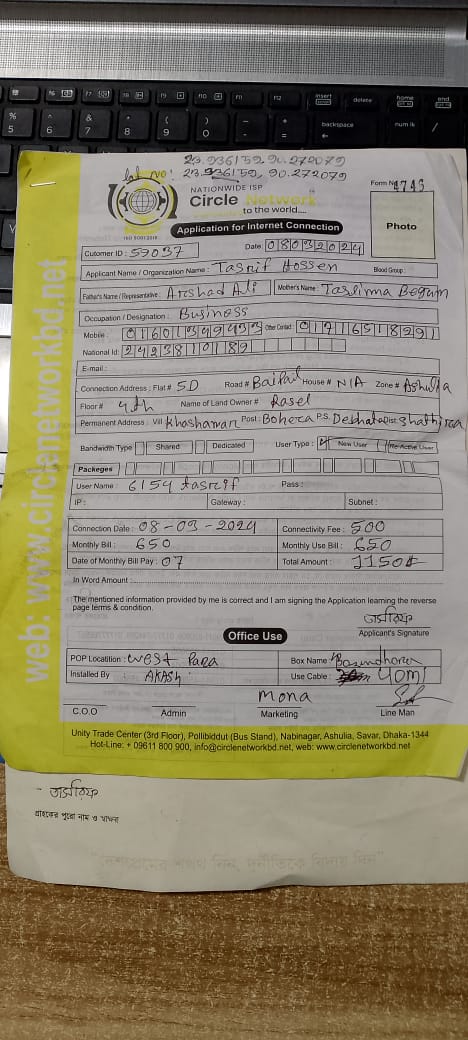 23.936159, 90.272079
lat no: 23.936159, 90.272079
NATIONWIDE ISP
Circle Network
to the world....
ISO 9001:2015
Form No 4745
Photo
Application for Internet Connection
Cutomer ID : 59037 Date 08032024
Applicant Name / Organization Name : Tasrif Hossen Blood Group :
Father's Name / Representative : Arshad Ali Mother's Name : Taslima Begum
Occupation / Designation : Business
Mobile : 01601349433 Other Contact : 01716518291
National Id : 2423811018
E-mail :
Connection Address : Flat # 5D Road # Baipail House # N/A Zone # Ashulia
Floor # 4th Name of Land Owner # Rasel
Permanent Address : Vill Khoshamari Post : Bohera P.S. Debhata Dist Shathira
Bandwidth Type Shared Dedicated User Type : New User Re-Active User
Packeges
User Name : 6154 tasrif Pass :
IP : Gateway : Subnet :
Connection Date : 08-03-2024 Connectivity Fee : 500
Monthly Bill : 650 Monthly Use Bill : 650
Date of Monthly Bill Pay : 07 Total Amount : 1150
In Word Amount
The mentioned information provided by me is correct and I am signing the Application learning the reverse
page terms & condition.
তাসরিফ
Applicant's Signature
Office Use
POP Locatition : West Para Box Name Basundhora
Installed By : AKASH Use Cable : 40m
Mona
C.O.O Admin Marketing Line Man
Unity Trade Center (3rd Floor), Pollibiddut (Bus Stand), Nabinagar, Ashulia, Savar, Dhaka-1344
Hot-Line: + 09611 800 900, info@circlenetworkbd.net, web: www.circlenetworkbd.net
web: www.circlenetworkbd.net
- তাসরিফ
গ্রাহকের পুরো নাম ও স্বাক্ষর